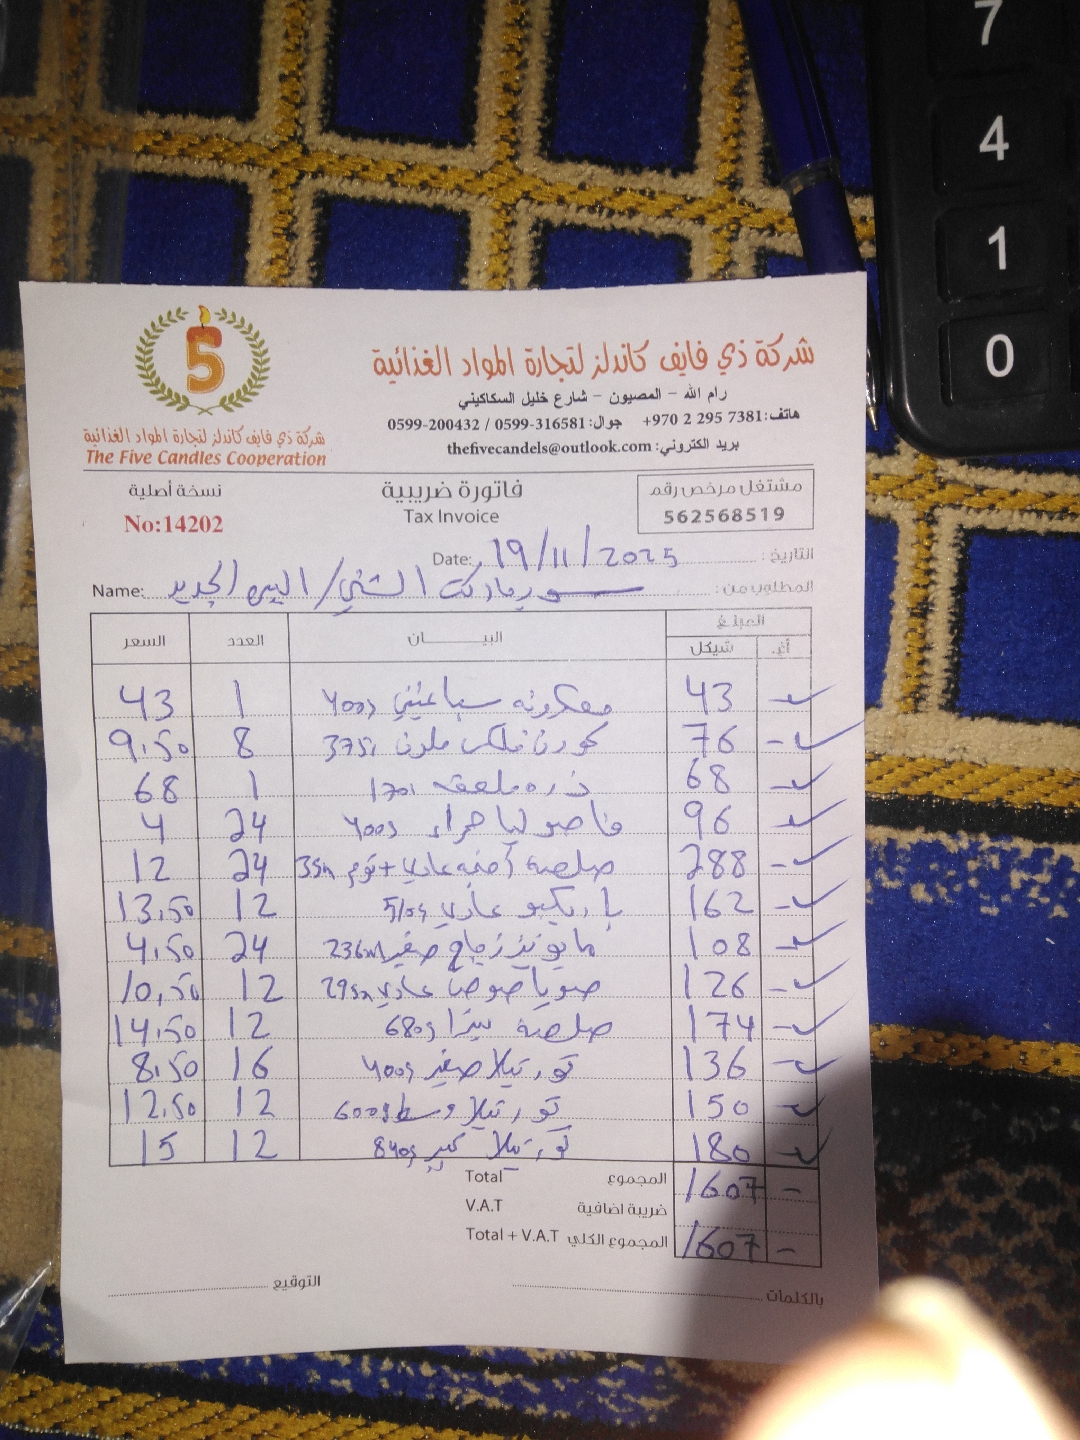 7
4
1
0
5
شركة ذي فايف كاندلز لتجارة المواد الغذائية
رام الله - المصيون - شارع خليل السكاكيني
هاتف: +970 2 295 7381 جوال: 0599-316581 / 0599-200432
بريد الكتروني: thefivecandels@outlook.com
شركة ذي فايف كاندلز لتجارة المواد الغذائية
The Five Candles Cooperation
مشتغل مرخص رقم
562568519
فاتورة ضريبية
Tax Invoice
نسخة أصلية
No:14202
التاريخ: 19/11/2025 Date:
المطلوب من: سوبرماركت الشني / البيره الجديد Name:
المبلغ
أغ. شيكل البيــــــان العدد السعر
- 43 معكرونه سباغيتي 400g 1 43
- 76 كورن فلكس ملون 375g 8 9.50
- 68 ذره ملعقه 1 68
- 96 فاصوليا حمراء 400g 24 4
- 288 صلصه عادي + ثوم 24 12
- 162 باربكيو عادي 510g 12 13.50
- 108 مايونيز زجاج صغير 236ml 24 4.50
- 126 صويا صوص عادي 12 10.50
- 174 صلصة بيتزا 680g 12 14.50
- 136 تورتيلا صغير 400g 16 8.50
- 150 تورتيلا وسط 600g 12 12.50
- 180 تورتيلا كبير 840g 12 15
- 1607 المجموع Total
ضريبة اضافية V.A.T
- 1607 المجموع الكلي Total + V.A.T
بالكلمات
التوقيع